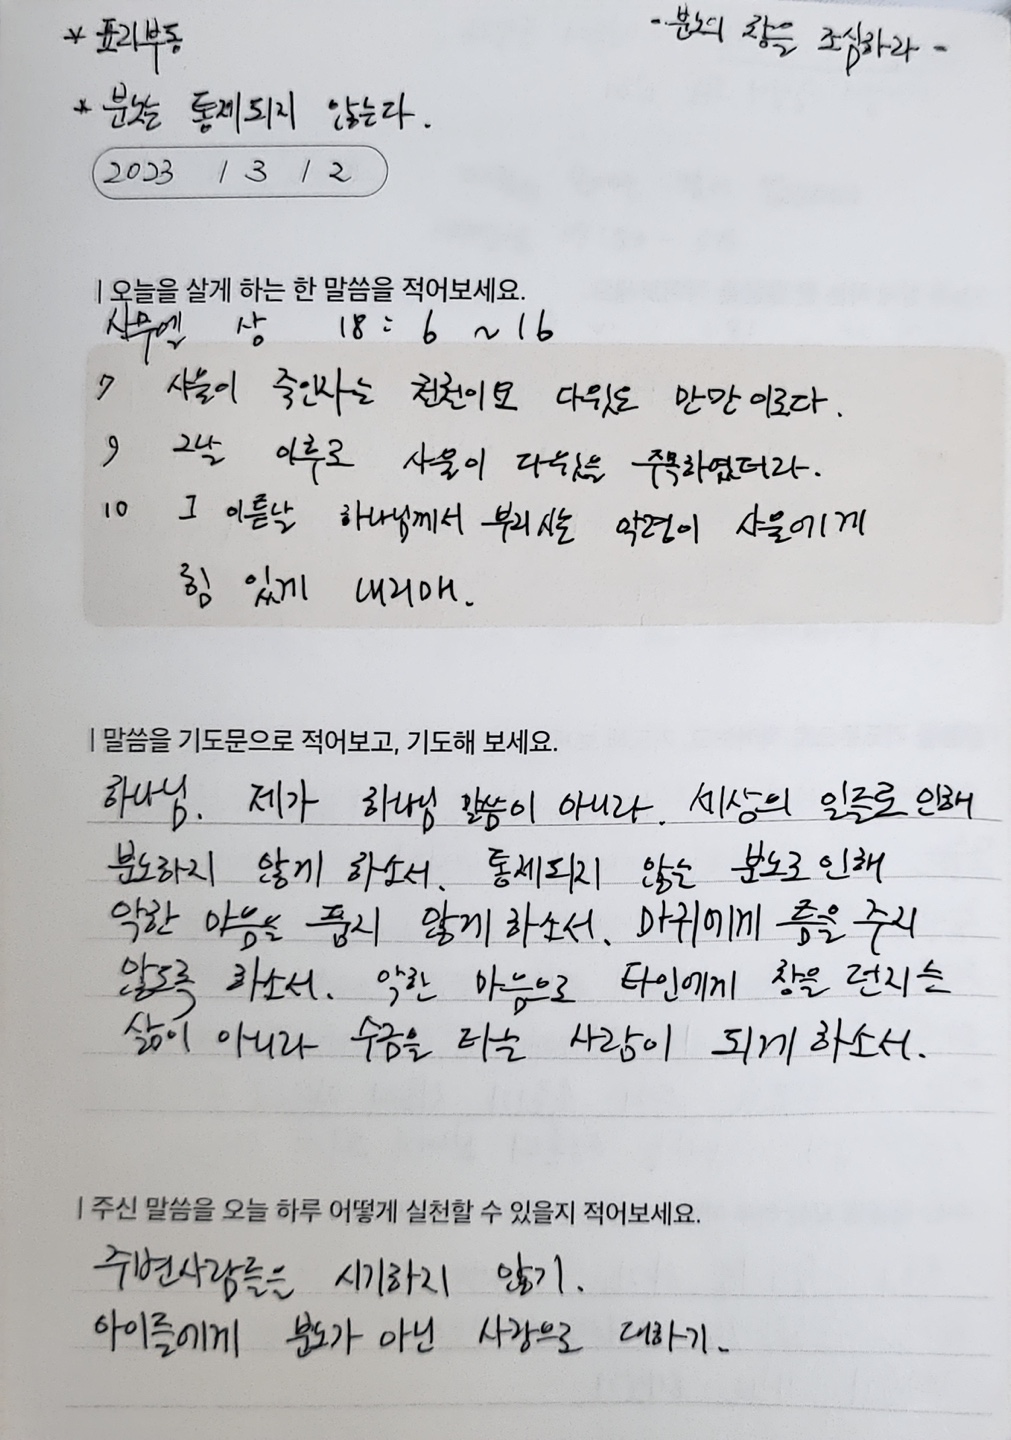 * 표리부동
- 분노의 창을 조심하라 -
* 분노는 통제되지 않는다.
2023 / 3 / 2
| 오늘을 살게 하는 한 말씀을 적어보세요.
사무엘 상 18 : 6 ~ 16
7 사울이 죽인자는 천천이요 다윗은 만만이로다.
9 그날 이후로 사울이 다윗을 주목하였더라.
10 그 이튿날 하나님께서 부리시는 악령이 사울에게
힘 있게 내리매.
| 말씀을 기도문으로 적어보고, 기도해 보세요.
하나님. 제가 하나님 말씀이 아니라. 세상의 일들로 인해
분노하지 않게 하소서. 통제되지 않는 분노로 인해
악한 마음을 품지 않게 하소서. 마귀에게 틈을 주지
않도록 하소서. 악한 마음으로 타인에게 창을 던지는
삶이 아니라 수금을 타는 사람이 되게 하소서.
| 주신 말씀을 오늘 하루 어떻게 실천할 수 있을지 적어보세요.
주변사람들을 시기하지 않기.
아이들에게 분노가 아닌 사랑으로 대하기.